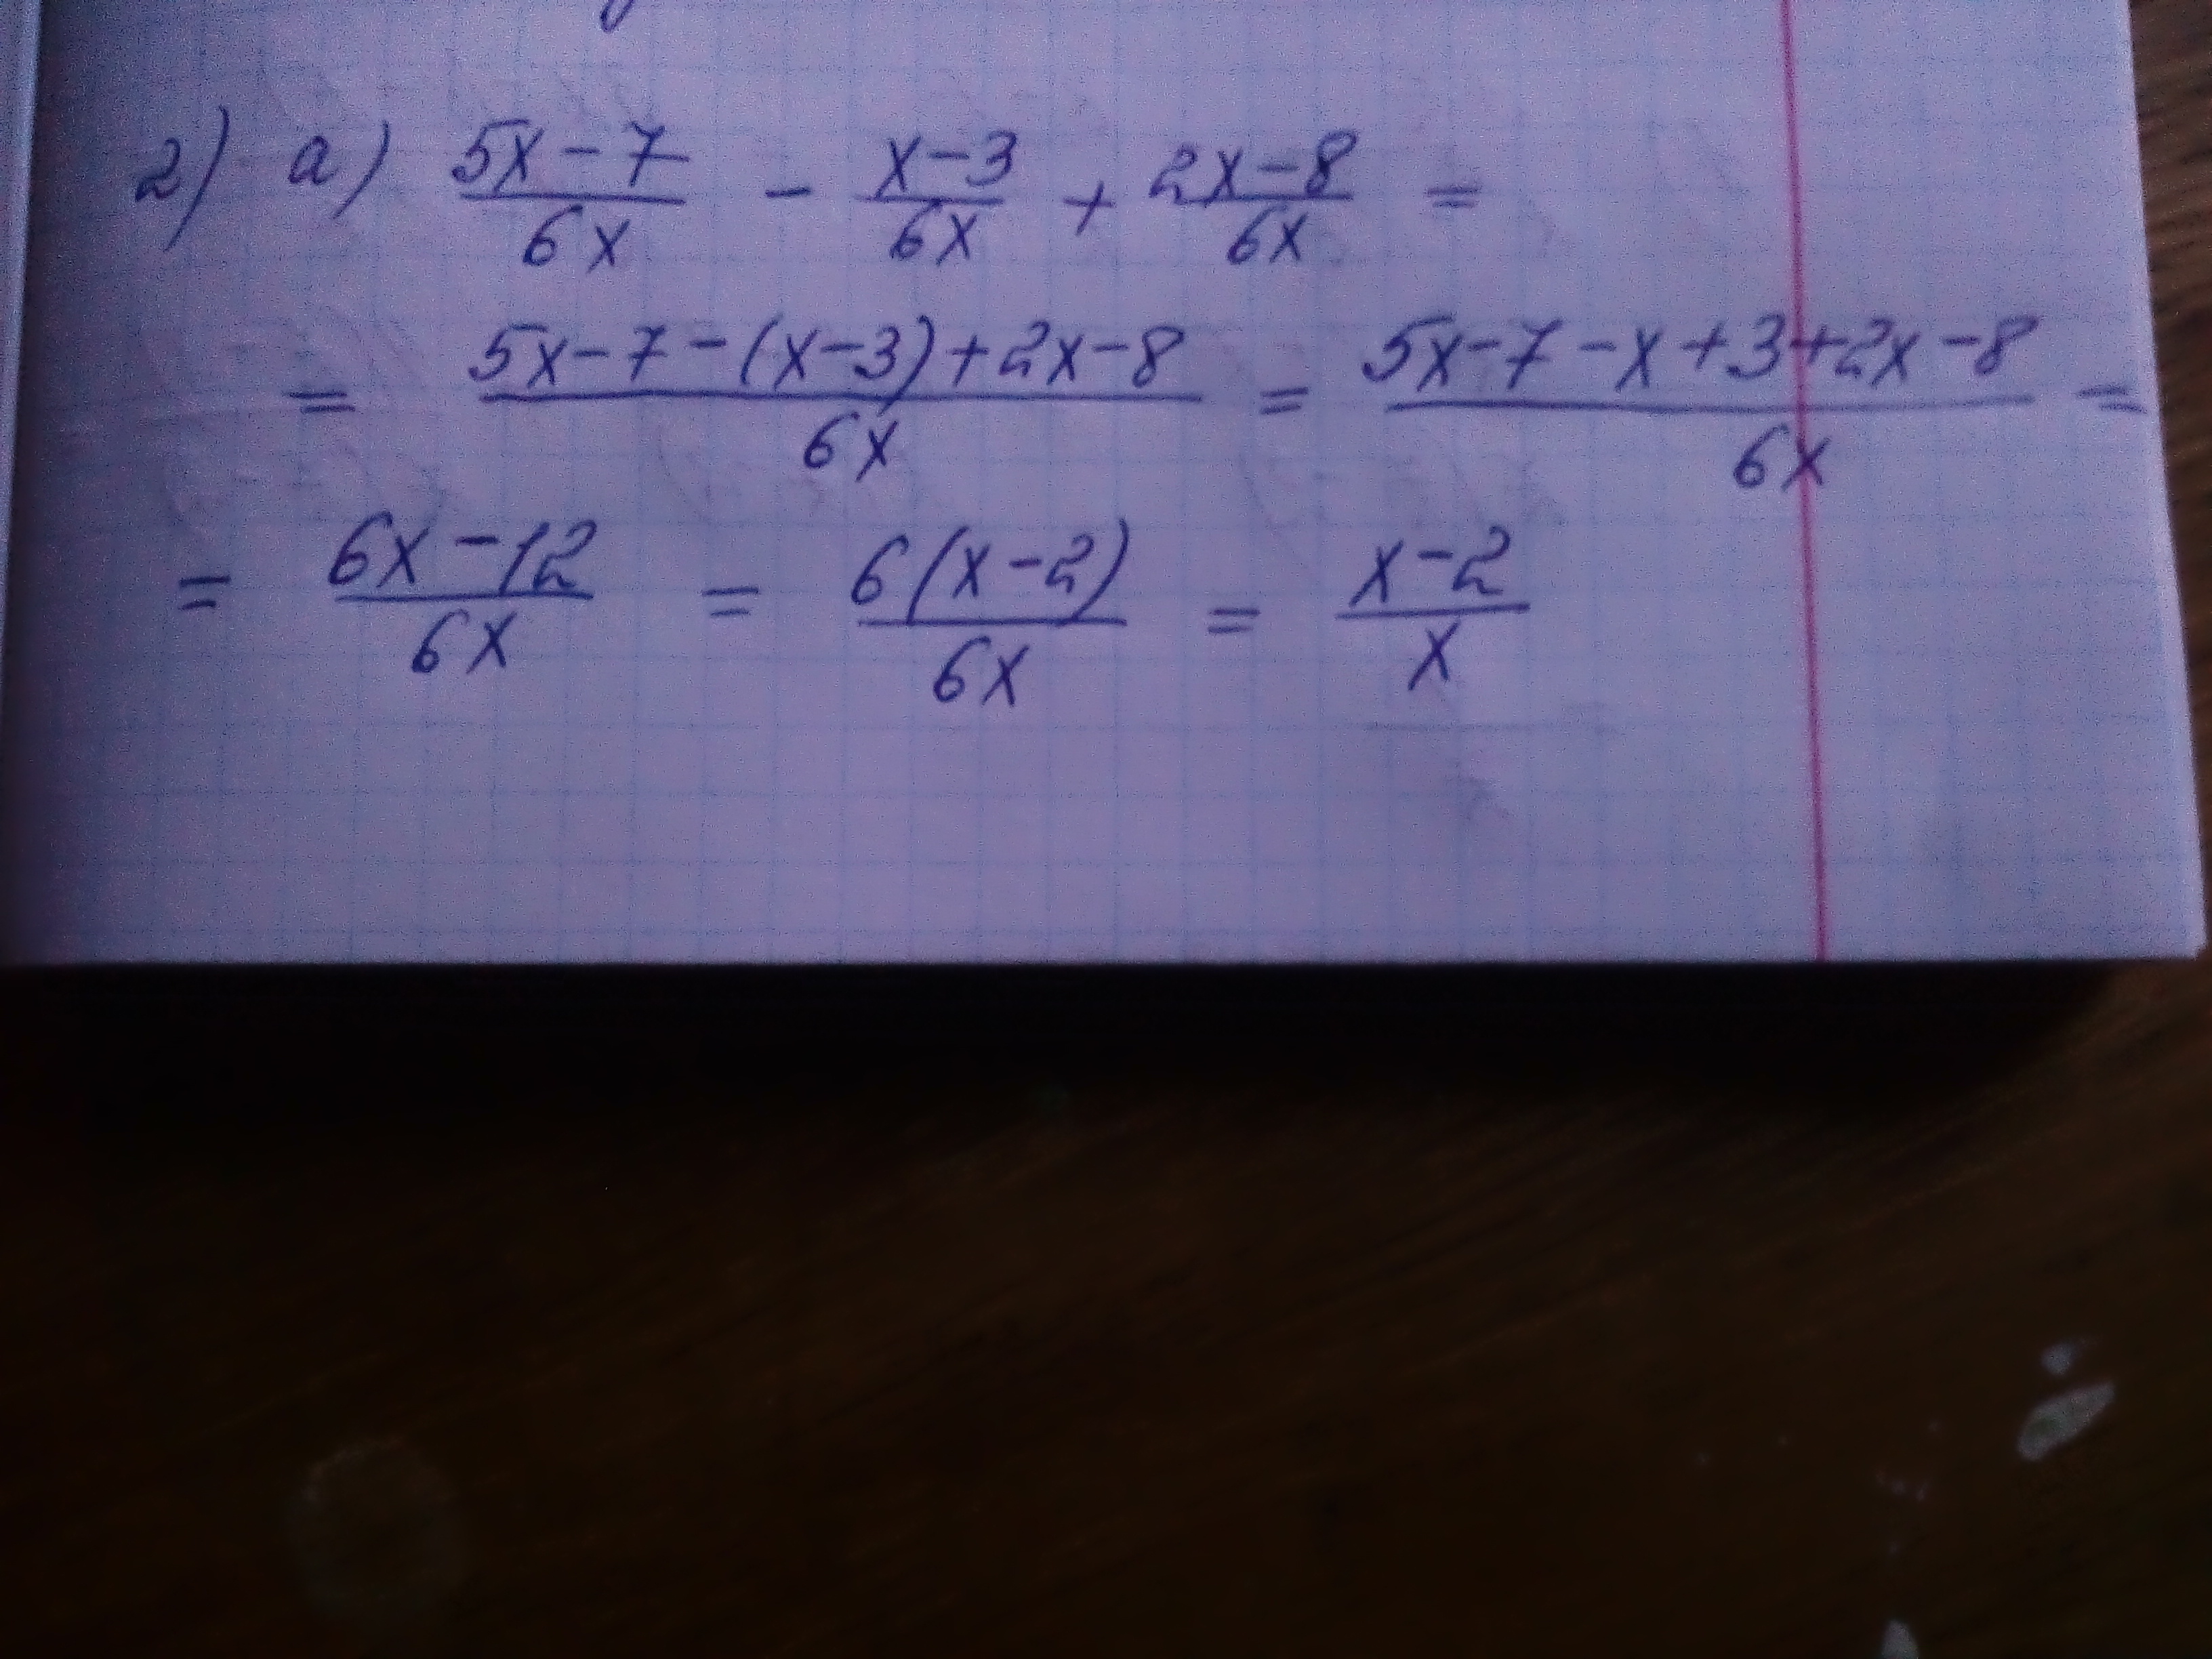 2) a) (5x-7)/(6x) - (x-3)/(6x) + (2x-8)/(6x) =
= (5x-7-(x-3)+2x-8)/(6x) = (5x-7-x+3+2x-8)/(6x) =
= (6x-12)/(6x) = (6(x-2))/(6x) = (x-2)/x